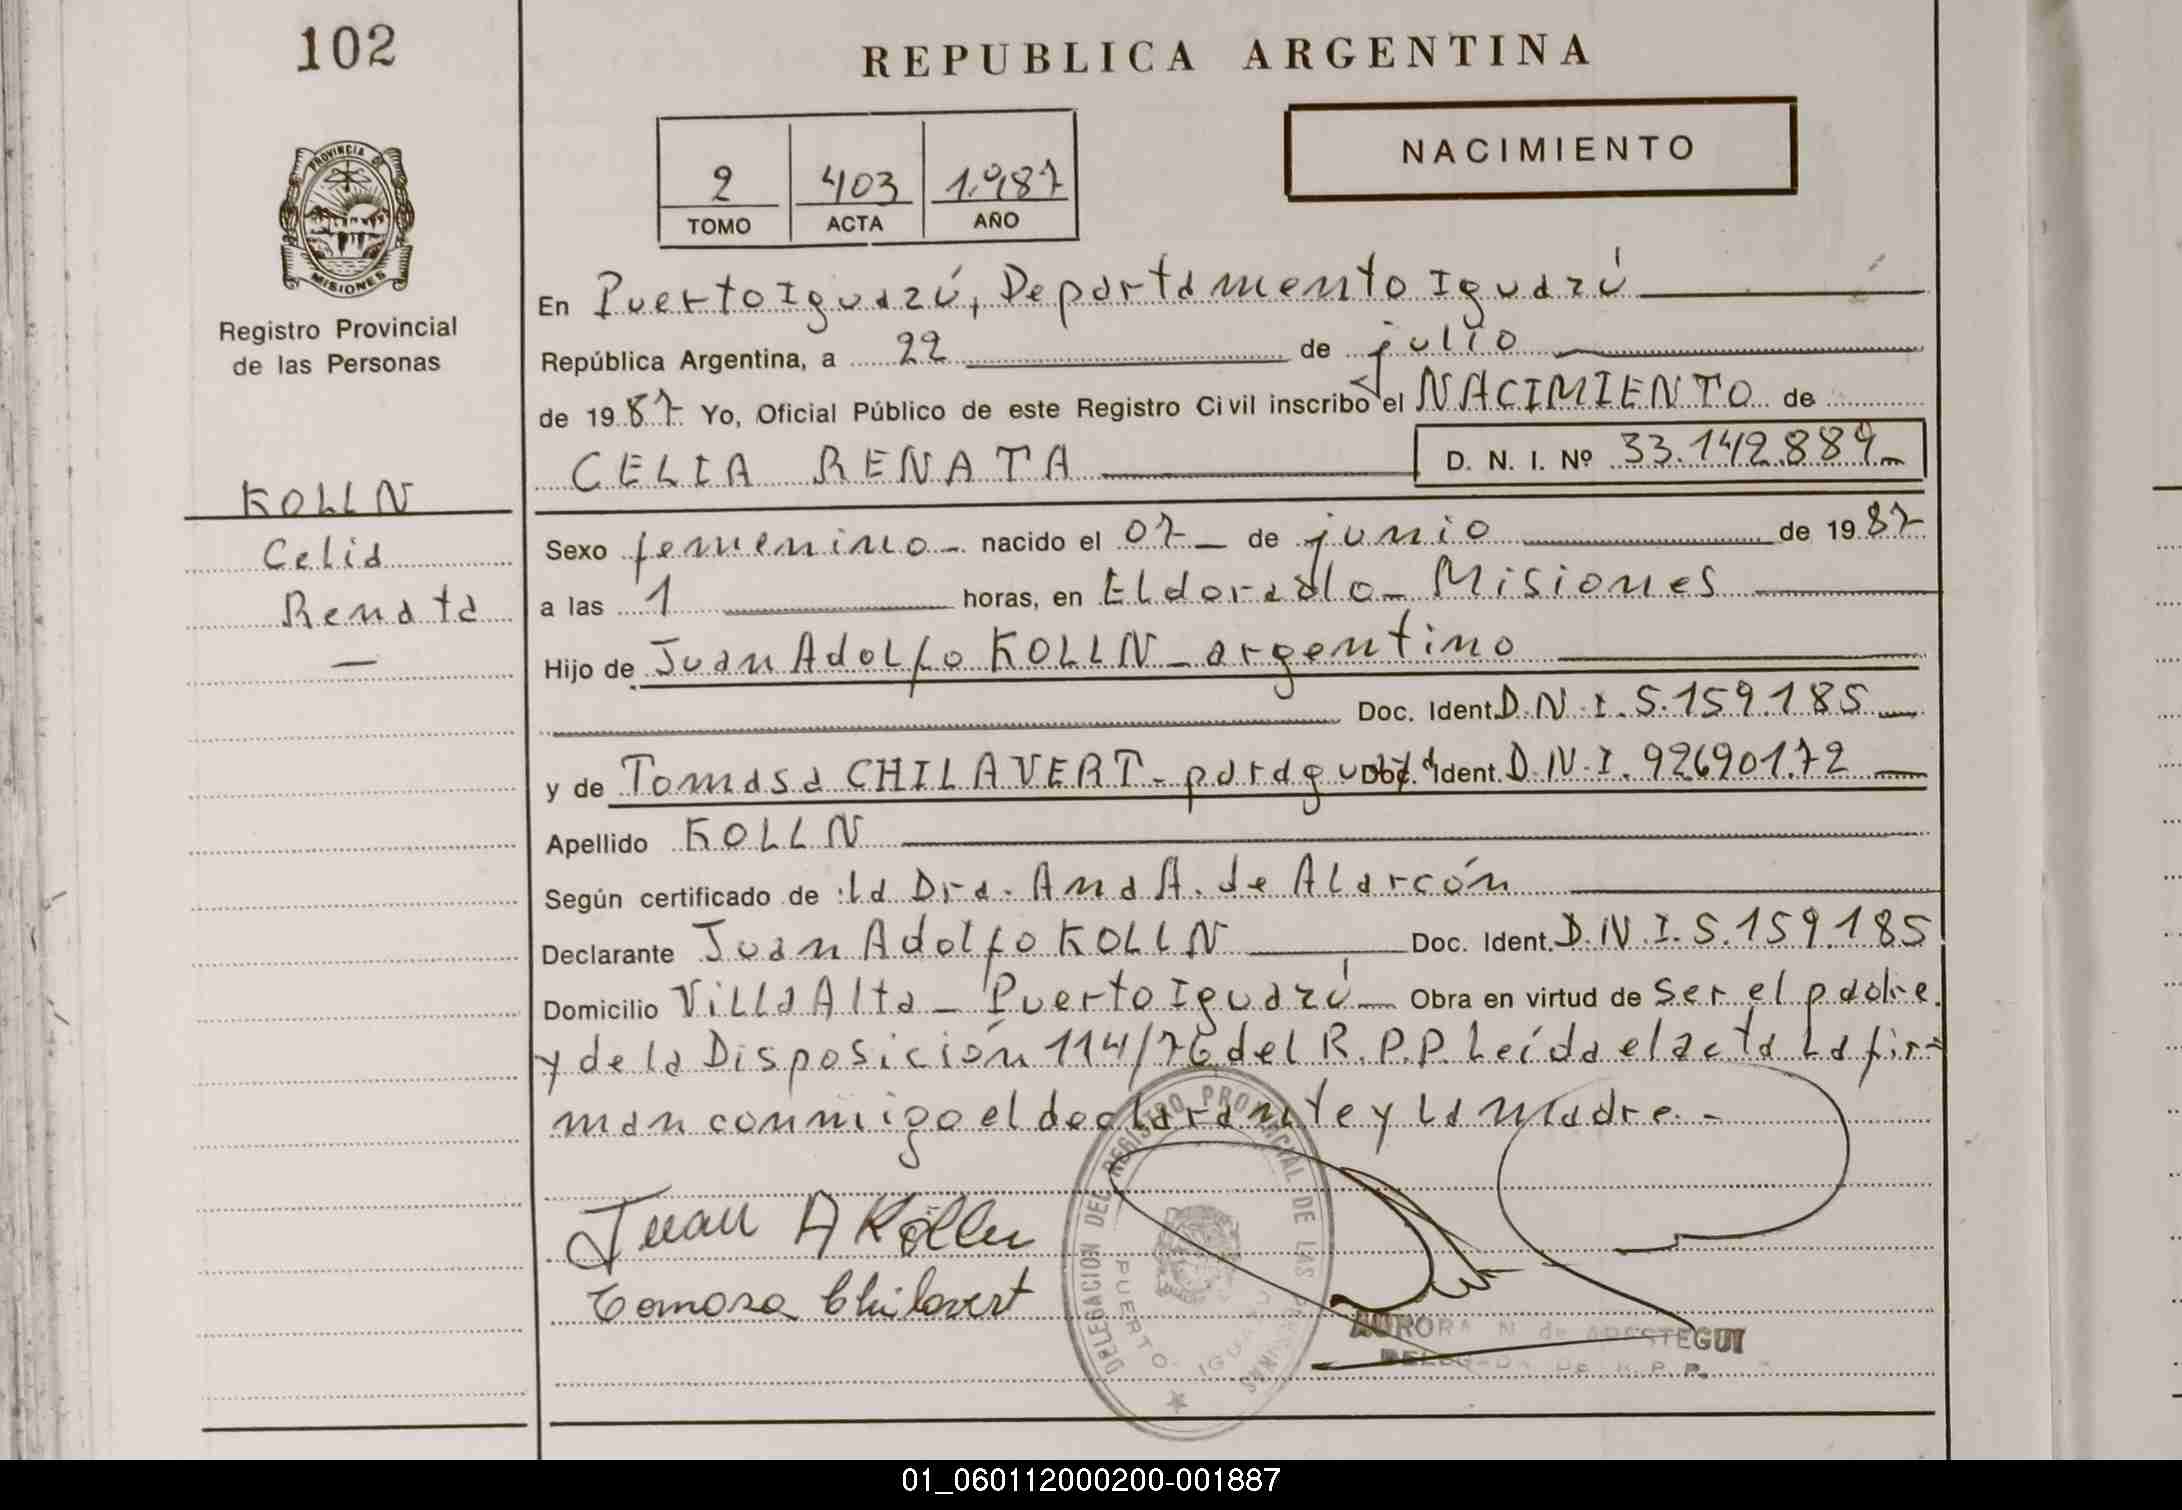 102
REPUBLICA ARGENTINA
NACIMIENTO
2 403 1.987
TOMO ACTA AÑO
PROVINCIA DE
MISIONES
Registro Provincial
de las Personas
KOLLN
Celia
Renata
En Puerto Iguazú, Departamento Iguazú
República Argentina, a 22 de julio
de 1987 Yo, Oficial Público de este Registro Civil inscribo el NACIMIENTO de
CELIA RENATA D. N. I. Nº 33.142.889
Sexo femenino nacido el 07 de junio de 1987
a las 1 horas, en Eldorado Misiones
Hijo de Juan Adolfo KOLLN argentino
Doc. Ident. D.N.I. 5.159.185
y de Tomasa CHILAVERT - paraguaya Doc. Ident. D.N.I. 92690172
Apellido KOLLN
Según certificado de la Dra. Ana A. de Alarcón
Declarante Juan Adolfo KOLLN Doc. Ident. D.N.I. 5.159.185
Domicilio Villa Alta - Puerto Iguazú Obra en virtud de ser el padre
y de la Disposición 114/76 del R.P.P. Leída el acta la fir=
man conmigo el declarante y la madre.-
Juan A Kölln
Tomasa Chilavert
DELEGACION DEL REGISTRO PROVINCIAL DE LAS PERSONAS
PUERTO IGUAZU
AURORA N. de AROSTEGUI
DELEGADA DE R.P.P.
01_060112000200-001887